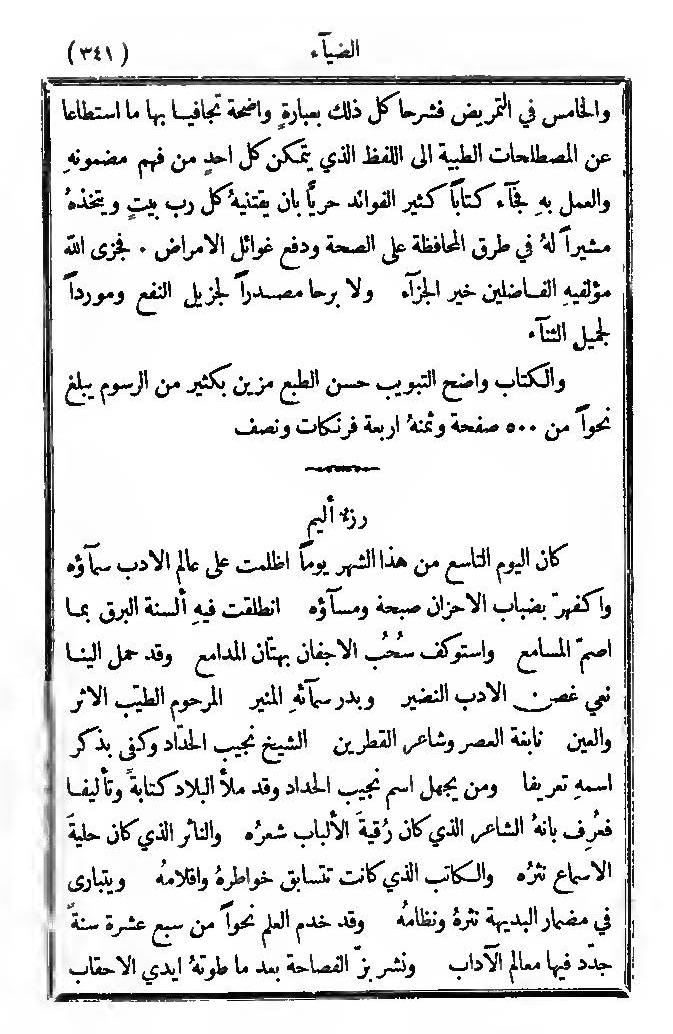 الضيآء (٣٤١)
والخامس في التمريض فشرحا كل ذلك بعبارةٍ واضحة تجافيا بها ما استطاعا
عن المصطلحات الطبية الى اللفظ الذي يتمكن كل احدٍ من فهم مضمونهِ
والعمل بهِ فجآء كتاباً كثير الفوائد حرياً بان يقتنيهُ كل رب بيتٍ ويتخذهُ
مشيراً لهُ في طرق المحافظة على الصحة ودفع غوائل الامراض . فجزى الله
مؤلفيهِ الفاضلين خير الجزآء ولا برحا مصدراً لجزيل النفع ومورداً
لجميل الثنآء
والكتاب واضح التبويب حسن الطبع مزين بكثير من الرسوم يبلغ
نحواً من ٥٠٠ صفحة وثمنهُ اربعة فرنكات ونصف
رزء أليم
كان اليوم التاسع من هذا الشهر يوماً اظلمت على عالم الادب سمآؤه
واكفهرّ بضباب الاحزان صبحة ومسآؤه انطلقت فيهِ ألسنة البرق بما
اصمّ المسامع واستوكف سُحُب الاجفان بهتّان المدامع وقد حمل الينا
نعي غصن الادب النضير وبدر سمآئهِ المنير المرحوم الطيّب الاثر
والعين نابغة العصر وشاعر القطرين الشيخ نجيب الحدّاد وكفى بذكر
اسمهِ تعريفا ومن يجهل اسم نجيب الحداد وقد ملأ البلاد كتابةً وتأليفا
فعُرِف بانهُ الشاعر الذي كان رُقيةَ الألباب شعرُه والناثر الذي كان حليةَ
الاسماع نثرُه والكاتب الذي كانت تتسابق خواطرهُ واقلامهُ ويتبارى
في مضمار البديهة نثرهُ ونظامهُ وقد خدم العلم نحواً من سبع عشرة سنةً
جدّد فيها معالم الآداب ونشر بزّ الفصاحة بعد ما طوتهُ ايدي الاحقاب